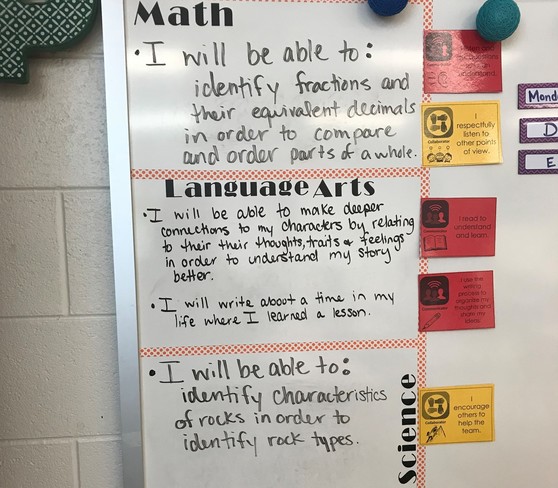 Math
• I will be able to:
identify fractions and
their equivalent decimals
in order to compare
and order parts of a whole.
Language Arts
• I will be able to make deeper
connections to my characters by relating
to their their thoughts, traits & feelings
in order to understand my story
better.
• I will write about a time in my
life where I learned a lesson.
Science
• I will be able to:
identify characteristics
of rocks in order to
identify rock types.
Collaborator
respectfully
listen to
other points
of view.
I read to
understand
and learn.
I use the
writing
process to
organize my
thoughts and
share my
ideas.
Collaborator
I
encourage
others to
help the
team.
Mond
D
E